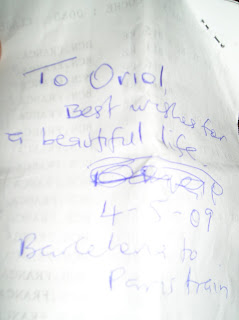 To Oriol
Best wishes for
a beautiful life
4-5-09
Barcelona to
Paris train